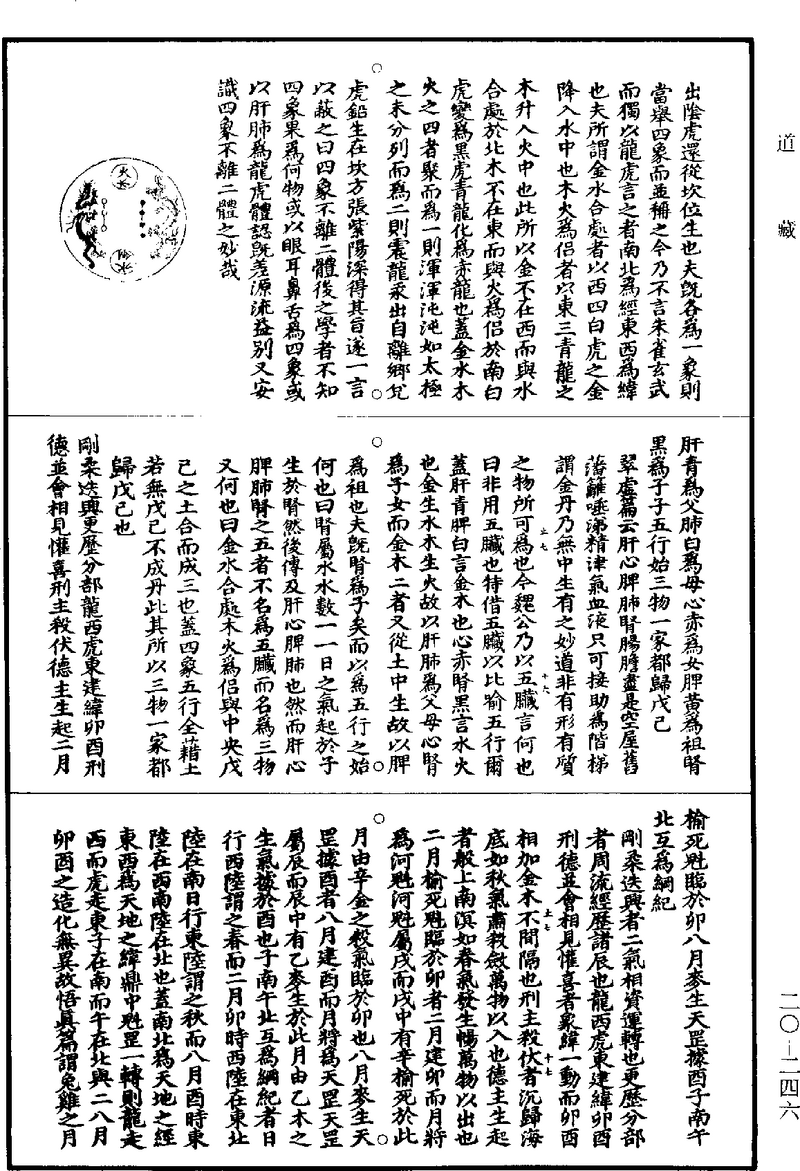 道藏
出陰虎還從坎位生也夫旣各爲一象則
當舉四象而並稱之今乃不言朱雀玄武
而獨以龍虎言之者南北爲經東西爲緯
也夫所謂金水合處者以西四白虎之金
降入水中也木火爲侶者以東三青龍之
木升入火中也此所以金不在西而與水
合處於北木不在東而與火爲侶於南白
虎變爲黑虎青龍化爲赤龍也蓋金水木
火之四者聚而爲一則渾渾沌沌如太極
之未分列而爲二則震龍汞出自離鄉兌
虎鉛生在坎方張紫陽深得其旨遂一言
以蔽之曰四象不離二體後之學者不知
四象果爲何物或以眼耳鼻舌爲四象或
以肝肺爲龍虎體認旣差源流益別又安
識四象不離二體之妙哉
肝青爲父肺白爲母心赤爲女脾黃爲祖腎
黑爲子子五行始三物一家都歸戊己
翠虛篇云肝心脾肺腎腸膽盡是空屋舊
藩籬唾涕精津氣血液只可接助爲階梯
謂金丹乃無中生有之妙道非有形有質
之物所可爲也今魏公乃以五臟言何也
曰非用五臟也特借五臟以比喻五行爾
蓋肝青脾白言金木也心赤腎黑言水火
也金生水木生火故以肝肺爲父母心腎
爲子女而金木二者又從土中生故以脾
爲祖也夫旣腎爲子矣而以爲五行之始
何也曰腎屬水水數一一日之氣起於子
生於腎然後傳及肝心脾肺也然而肝心
脾肺腎之五者不名爲五臟而名爲三物
又何也曰金水合處木火爲侶與中央戊
己之土合而成三也蓋四象五行全藉土
若無戊己不成丹此其所以三物一家都
歸戊己也
剛柔迭興更歷分部龍西虎東建緯卯酉刑
德並會相見懽喜刑主殺伏德主生起二月
榆死魁臨於卯八月麥生天罡據酉子南午
北互爲綱紀
剛柔迭興者二氣相資運轉也更歷分部
者周流經歷諸辰也龍西虎東建緯卯酉
刑德並會相見懽喜者衆緯一動而卯酉
相加金木不間隔也刑主殺伏者沉歸海
底如秋氣肅殺斂萬物以入也德主生起
者般上南溟如春氣發生暢萬物以出也
二月榆死魁臨於卯者二月建卯而月將
爲河魁河魁屬戌而戌中有辛榆死於此
月由辛金之殺氣臨於卯也八月麥生天
罡據酉者八月建酉而月將爲天罡天罡
屬辰而辰中有乙麥生於此月由乙木之
生氣據於酉也子南午北互爲綱紀者日
行西陸謂之春而二月卯時西陸在東北
陸在南日行東陸謂之秋而八月酉時東
陸在西南陸在北也蓋南北爲天地之經
東西爲天地之緯鼎中魁罡一轉則龍走
西而虎走東子在南而午在北與二八月
卯酉之造化無異故悟真篇謂兔雞之月
二〇－二四六